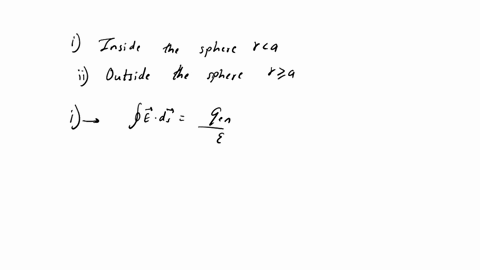 i) Inside the sphere r<a
ii) Outside the sphere r≥a
i)→ ∮E⃗·ds⃗ = q_en/ε